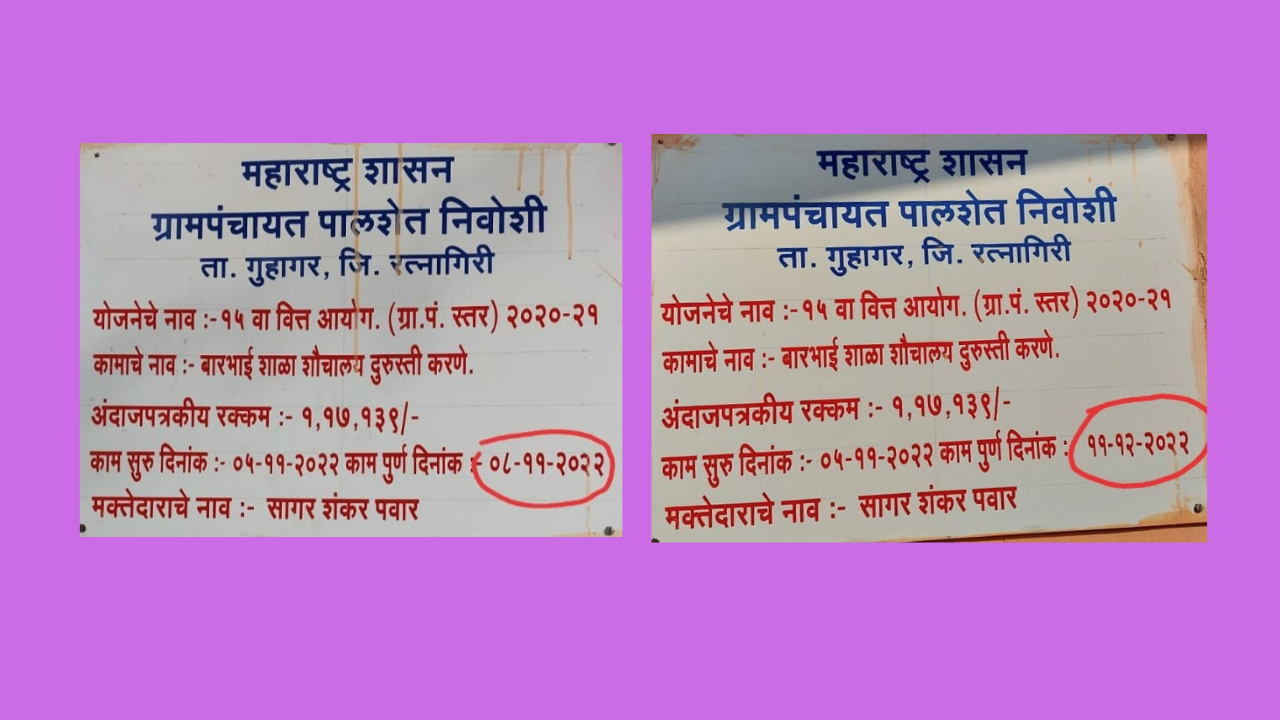 महाराष्ट्र शासन
ग्रामपंचायत पालशेत निवोशी
ता. गुहागर, जि. रत्नागिरी
योजनेचे नाव :-१५ वा वित्त आयोग. (ग्रा.पं. स्तर) २०२०-२१
कामाचे नाव :- बारभाई शाळा शौचालय दुरुस्ती करणे.
अंदाजपत्रकीय रक्कम :- १,१७,१३९/-
काम सुरु दिनांक :- ०५-११-२०२२ काम पुर्ण दिनांक :- ०८-११-२०२२
मक्तेदाराचे नाव :- सागर शंकर पवार
महाराष्ट्र शासन
ग्रामपंचायत पालशेत निवोशी
ता. गुहागर, जि. रत्नागिरी
योजनेचे नाव :-१५ वा वित्त आयोग. (ग्रा.पं. स्तर) २०२०-२१
कामाचे नाव :- बारभाई शाळा शौचालय दुरुस्ती करणे.
अंदाजपत्रकीय रक्कम :- १,१७,१३९/-
काम सुरु दिनांक :- ०५-११-२०२२ काम पुर्ण दिनांक : ११-१२-२०२२
मक्तेदाराचे नाव :- सागर शंकर पवार